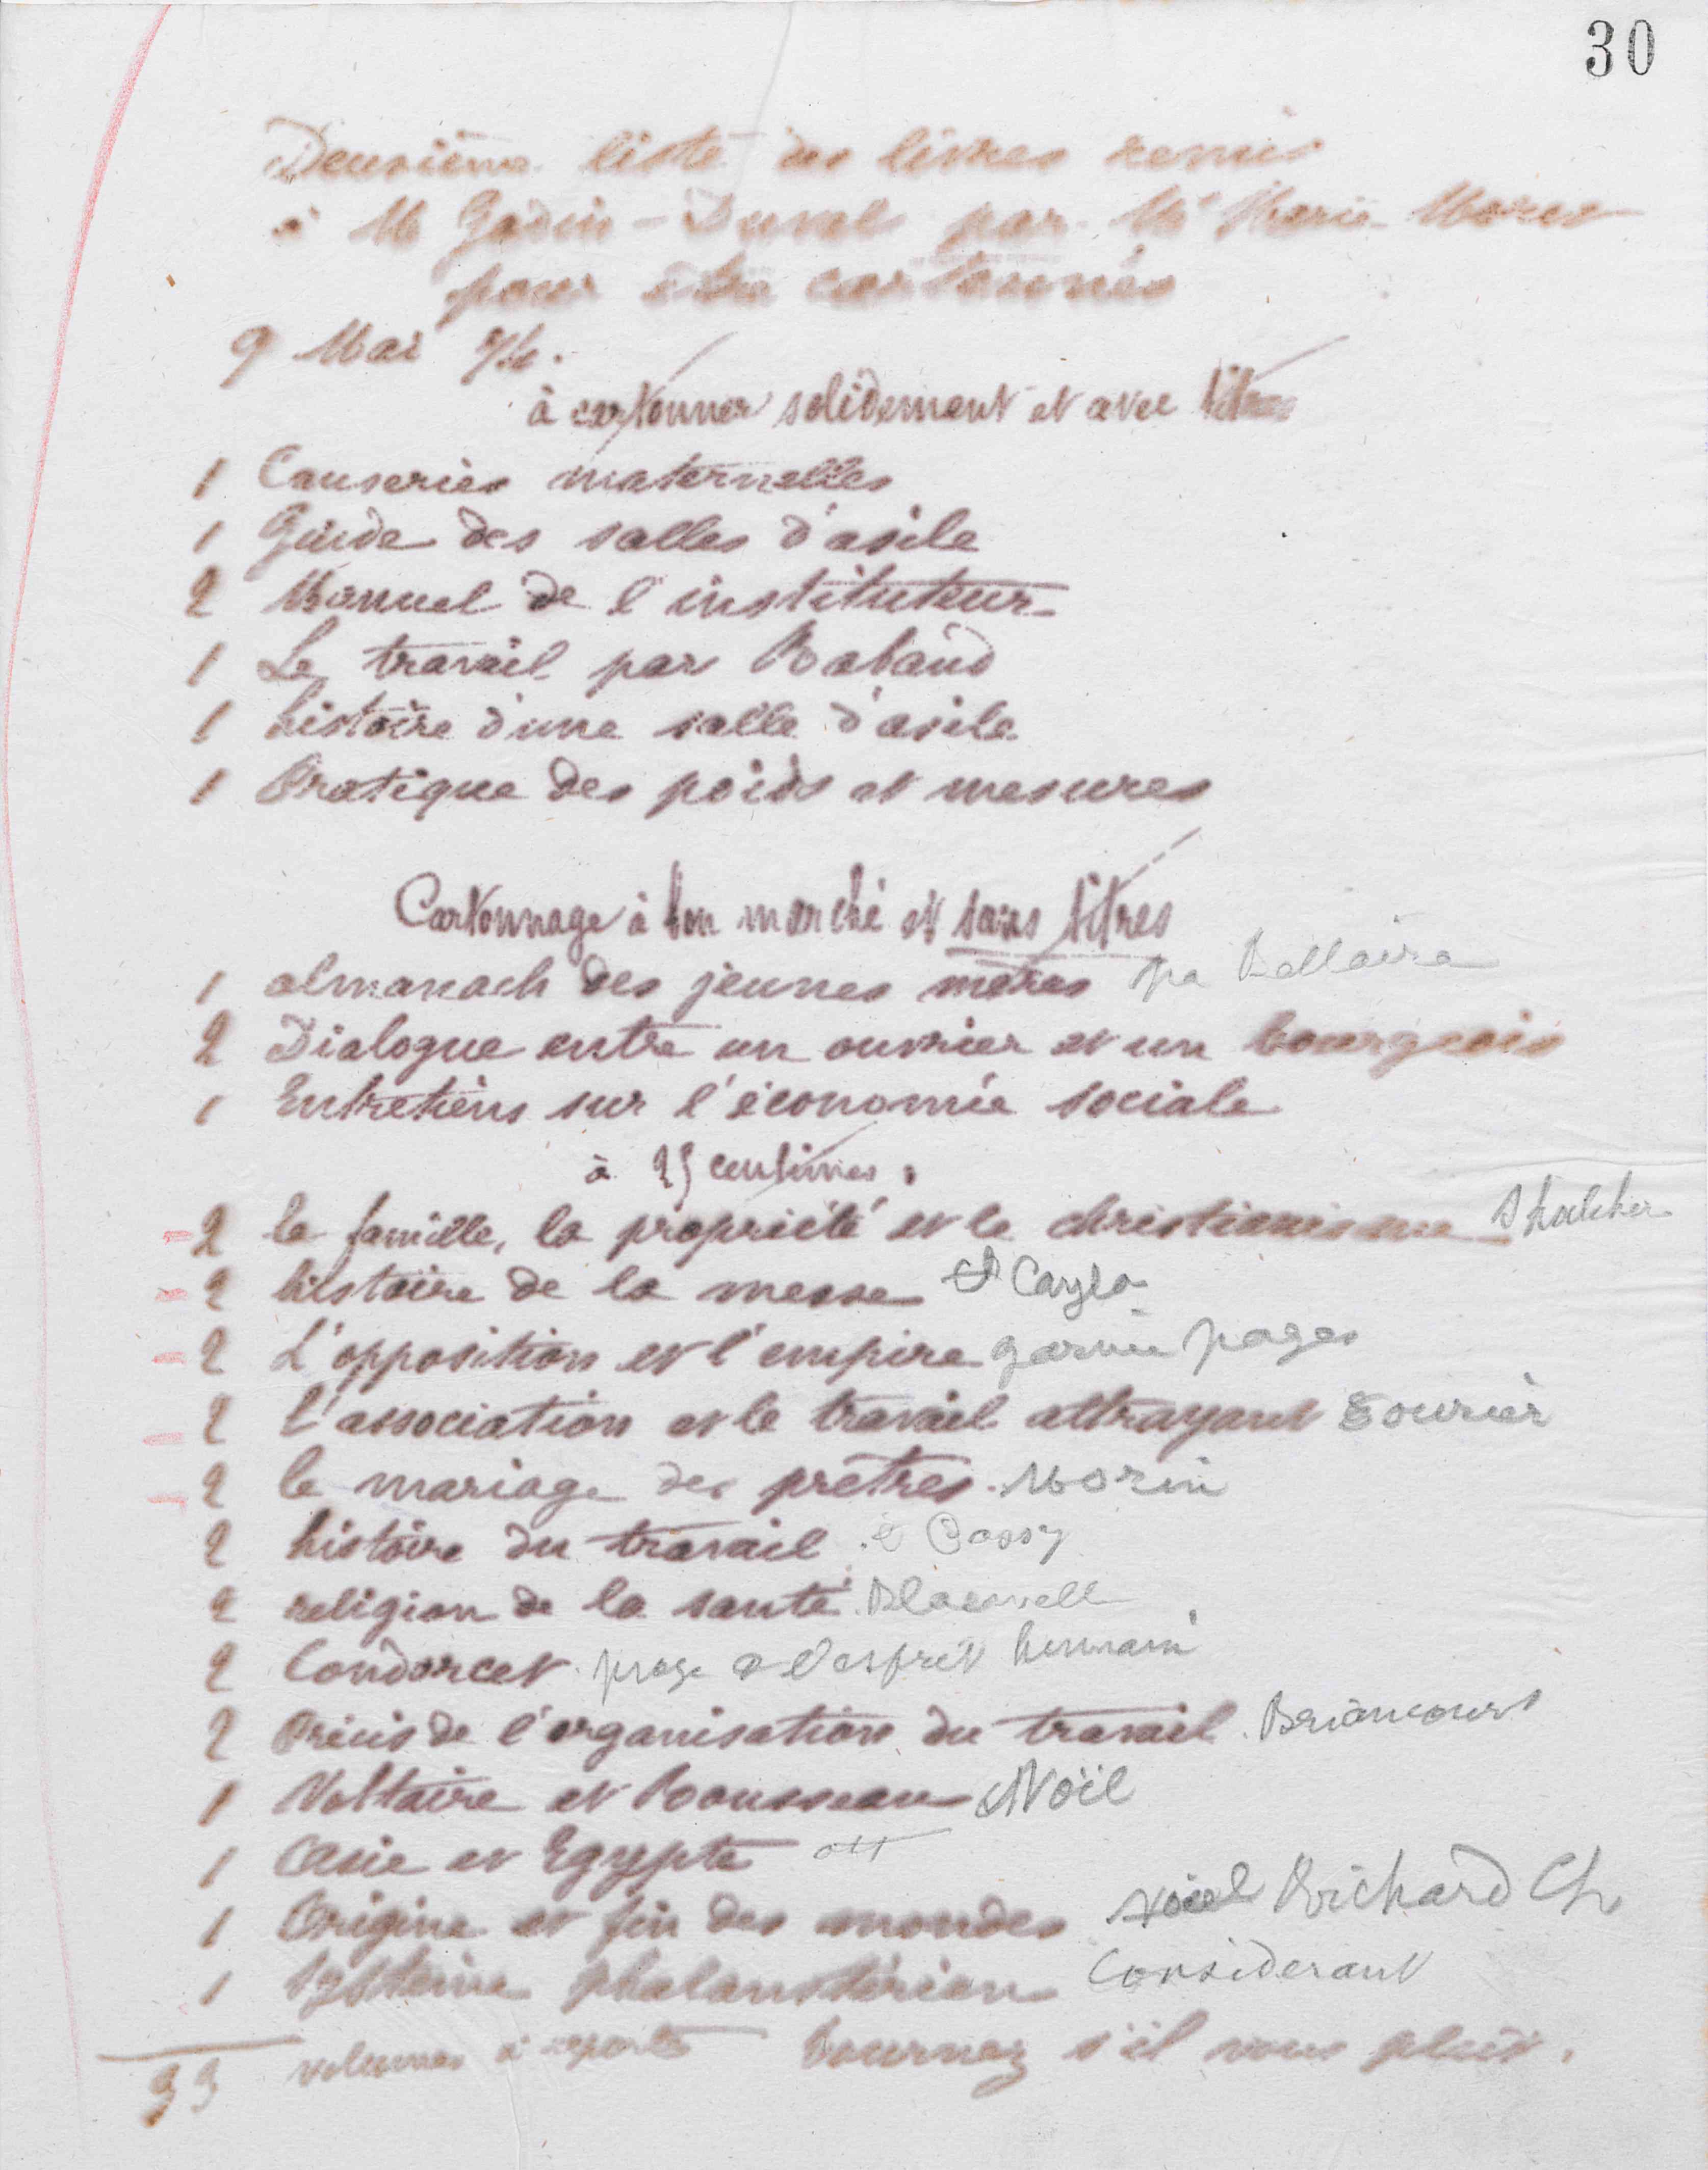 30
Deuxième liste des livres remis
à M Godin-Duval par Me Marie Moret
pour être cartonnés
9 Mai 74.
à cartonner solidement et avec titres
1 Causeries maternelles
1 Guide des salles d'asile
2 Manuel de l'instituteur
1 Le travail par Rabaud
1 histoire d'une salle d'asile
1 Pratique des poids et mesures
Cartonnage à bon marché et sans titres
1 almanach des jeunes mères pa Bellaire
2 Dialogue entre un ouvrier et un bourgeois
1 Entretiens sur l'économie sociale
à 25 centimes.
2 la famille, la propriété et le christianisme
2 histoire de la messe Cayla
2 L'opposition et l'empire garnier pages
2 L'association et le travail attrayant Fourier
2 le mariage des prêtres. Morin
2 histoire du travail
2 religion de la santé Blacwell
2 Condorcet. prog de l'esprit humain
2 Précis de l'organisation du travail. Briancourt
1 Voltaire et Rousseau Noël
1 Asie et Egypte ott
1 Origine et fin des mondes Richard Ch
1 Système phalanstérien Considerant
33 volumes à reporter Tournez s'il vous plait.